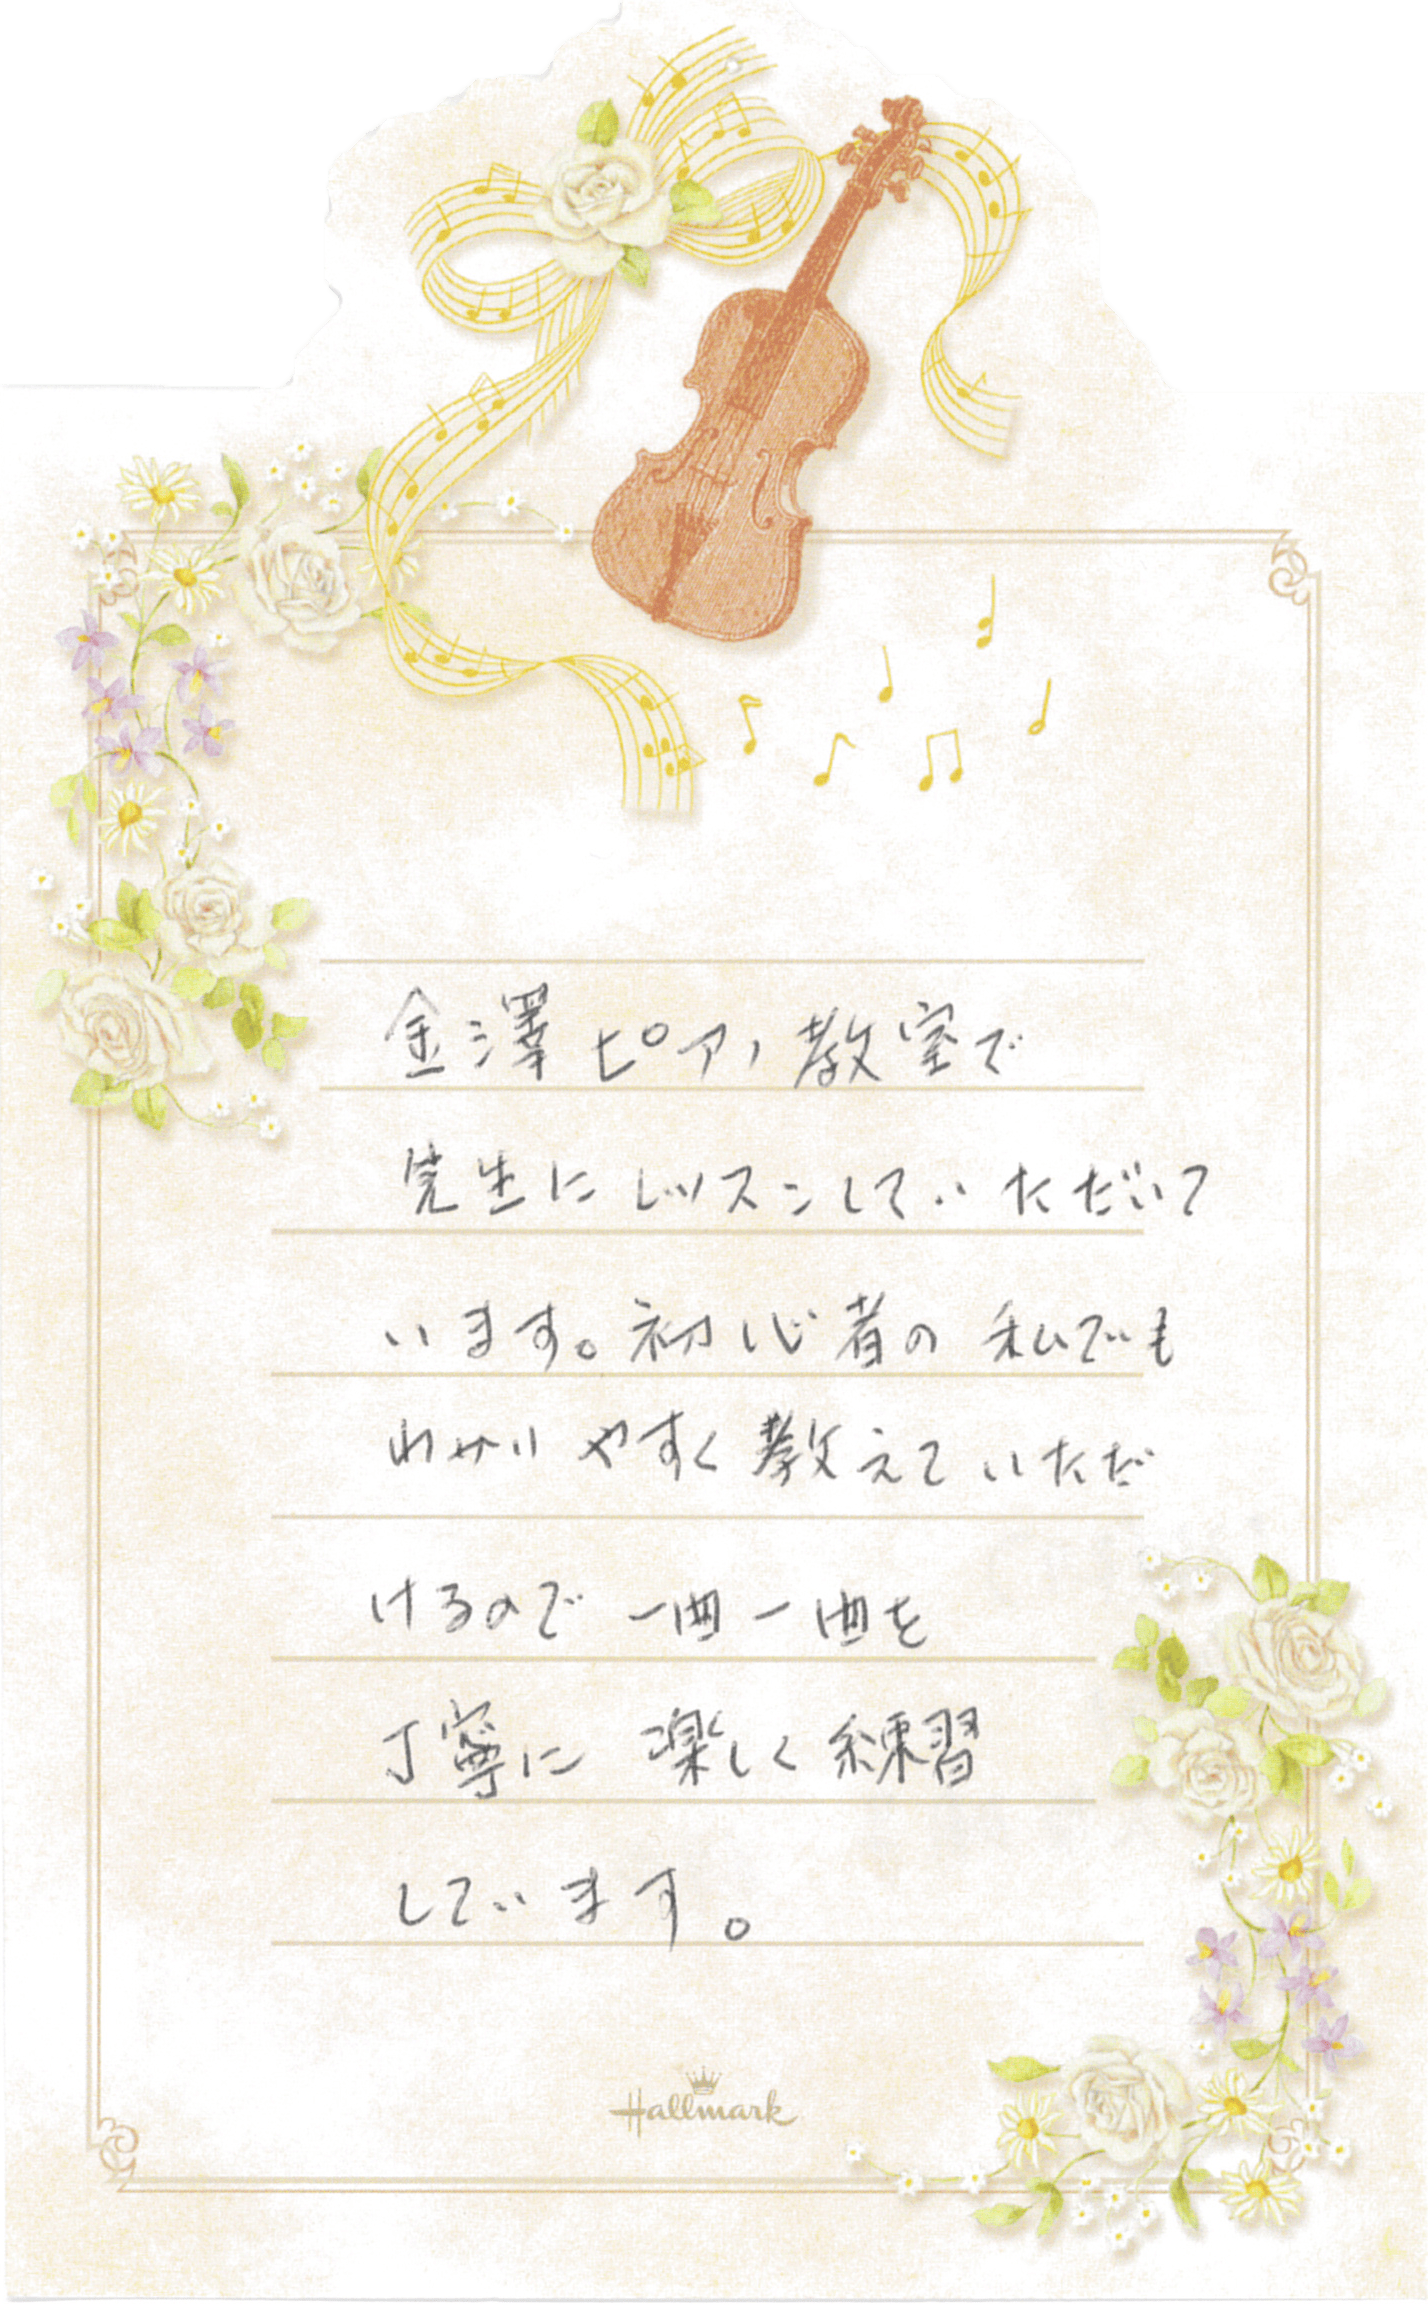 金澤ピアノ教室で
先生にレッスンしていただいて
います。初心者の私でも
わかりやすく教えていただ
けるので一曲一曲を
丁寧に楽しく練習
しています。
Hallmark